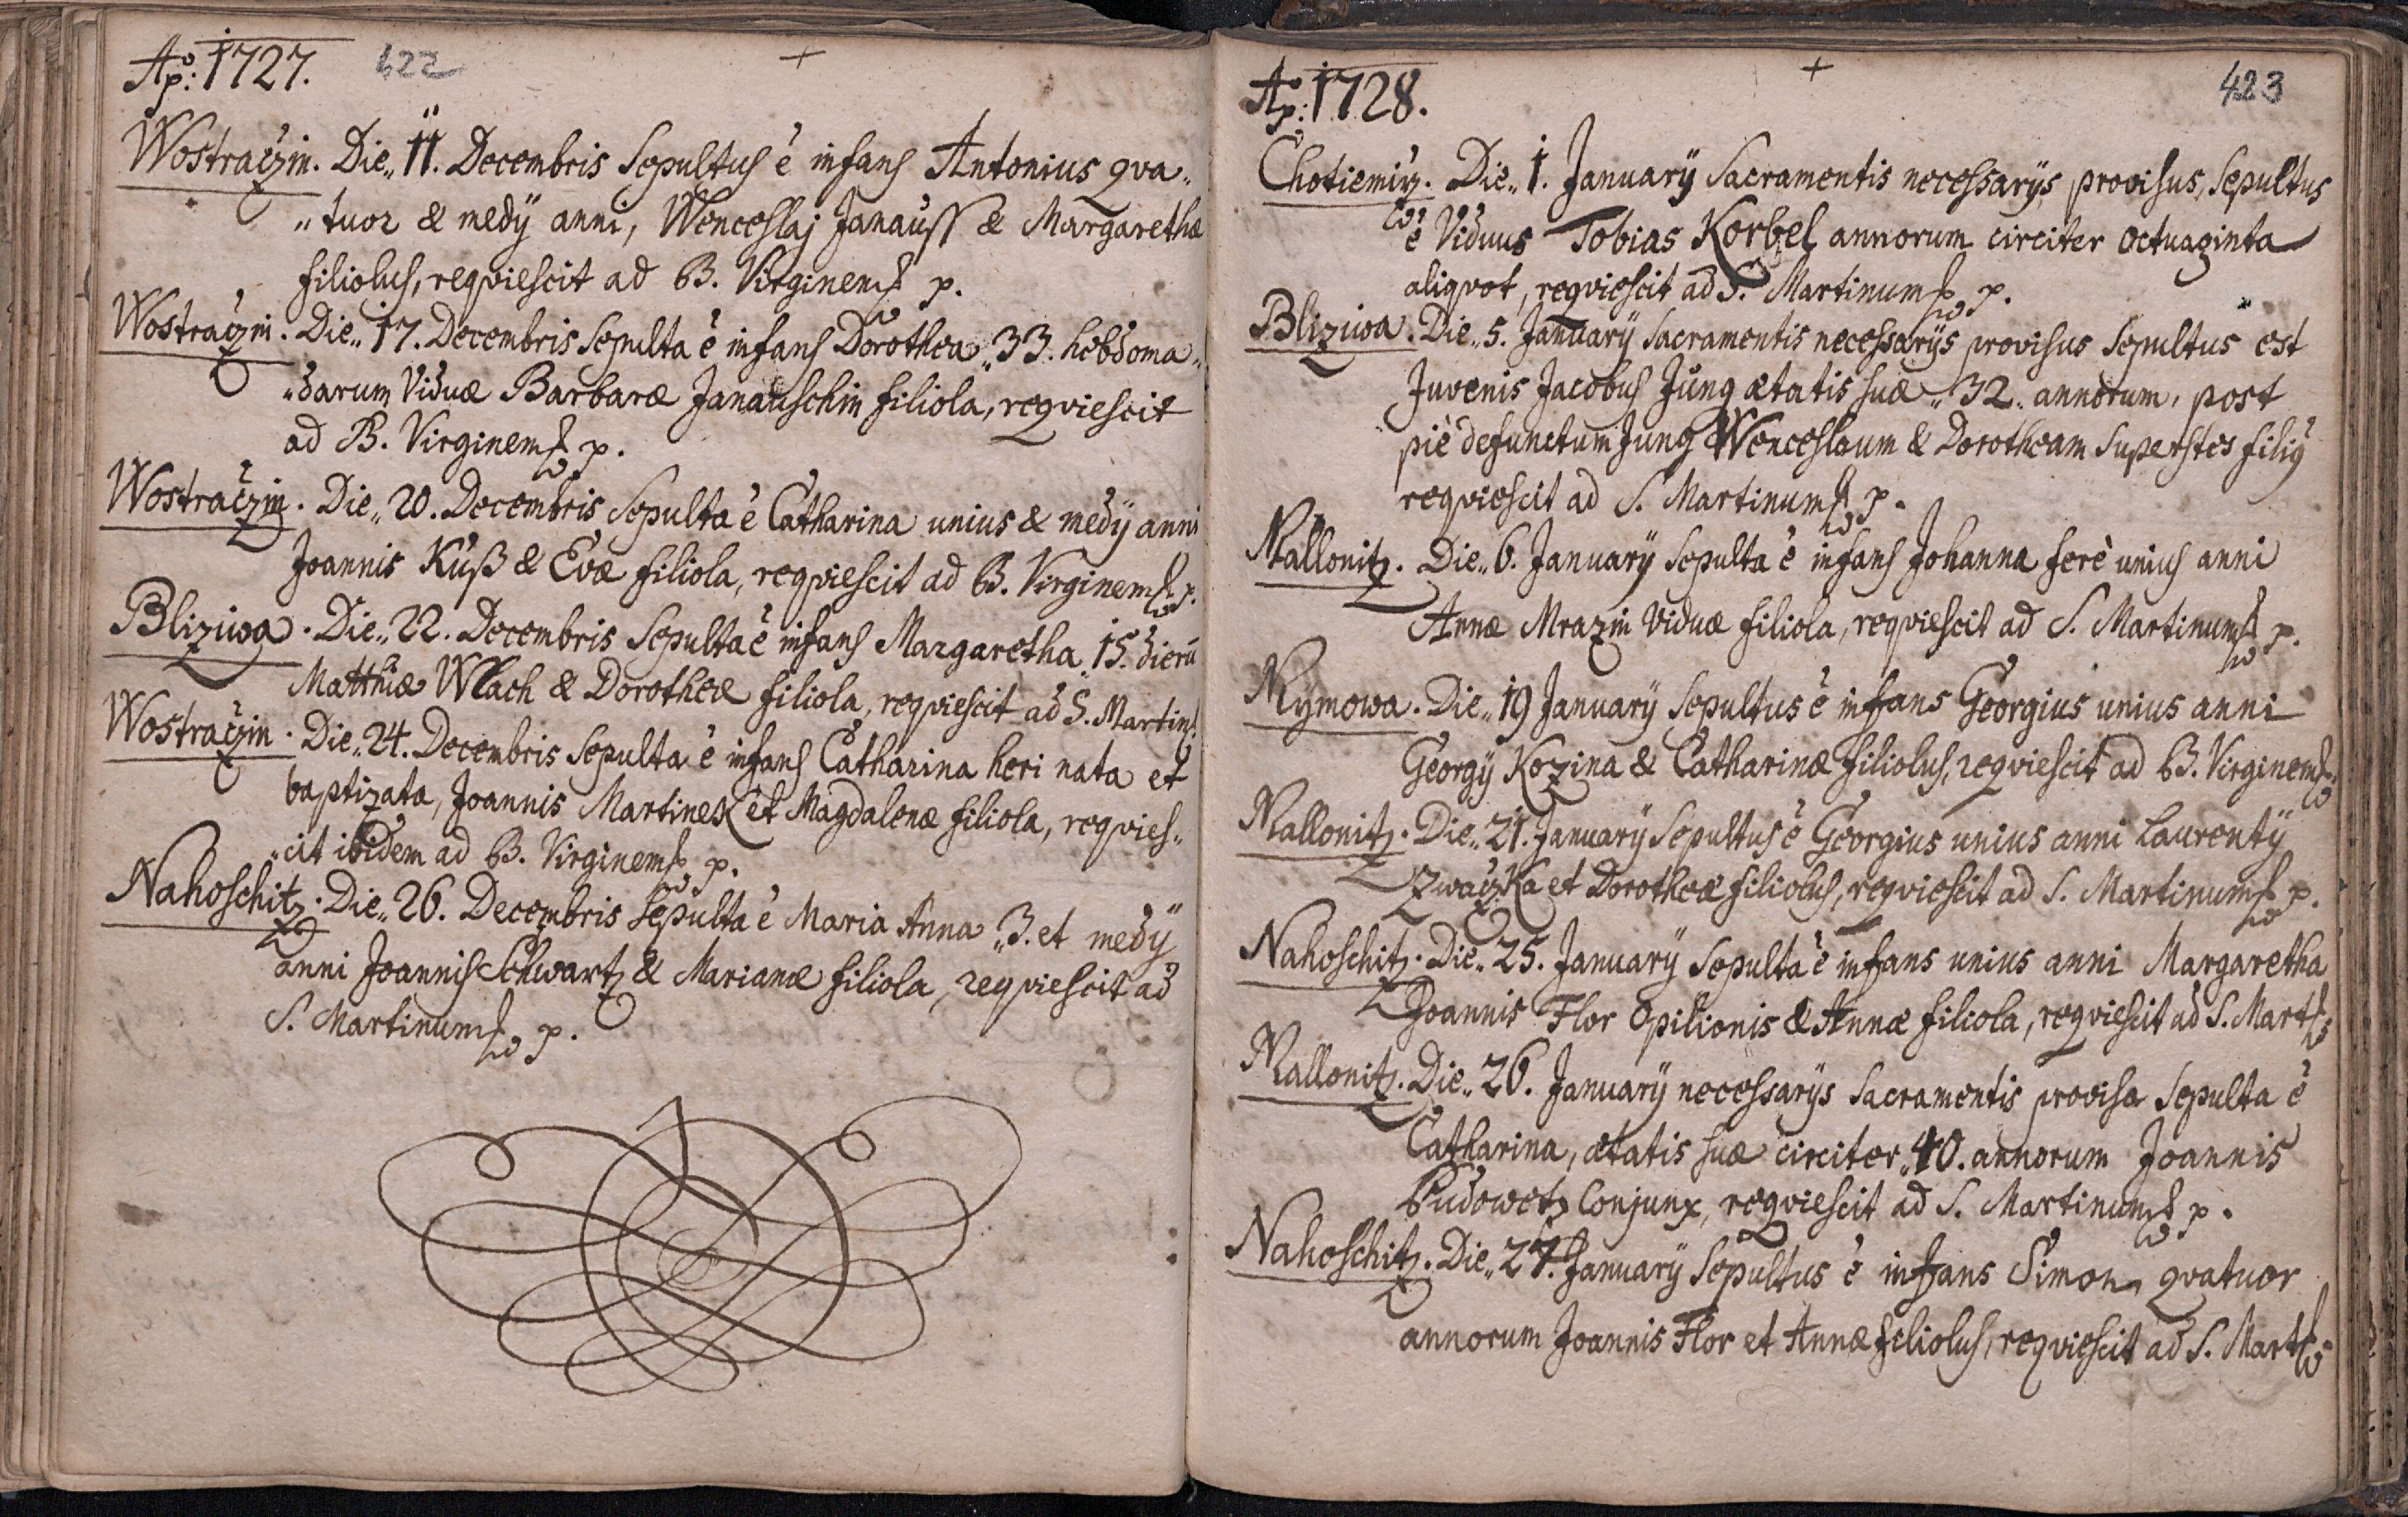 Ao: 1727. 422
Wostračzin. Die„ 11. Decembris Sepultus è infans Antonius qva„
„tuor & medÿ anni, Wenceslaj Janauss & Margarethæ
filiolus, reqviescit ad B. Virginem p.
Wostračzin. Die„ 17. Decembris Sepulta è infans Dorothea „33. hebdoma„
„darum Viduæ Barbaræ Janauschin filiola, reqviescit
ad B. Virginem p.
Wostračzin. Die„ 20. Decembris Sepulta è Catharina unius & medÿ anni
Joannis Kuß & Evæ filiola, reqviescit ad B. Virginem p.
Bliziwa. Die„ 22. Decembris Sepulta è infans Margaretha „15. dierū
Matthiæ Wlach & Dorotheæ filiola, reqviescit ad S. Martin
Wostračzin. Die„ 24. Decembris Sepulta è infans Catharina heri nata et
baptizata, Joannis Martinek et Magdalenæ filiola, reqvies„
„cit ibidem ad B. Virginem p.
Nahoschitz. Die„ 26. Decembris Sepulta è Maria Anna „3. et medÿ
anni Joannis Schwartz & Marianæ filiola, reqviescit ad
S. Martinum p.
Ao: 1728. 423
Chotiemiřz. Die„ 1. Januarÿ Sacramentis necessarÿs provisus, Sepultus
è Viduus Tobias Korbel annorum circiter octuaginta
aliqvot, reqviescit ad S. Martinum p.
Bliziwa. Die„ 5. Januarÿ Sacramentis necessarÿs provisus Sepultus est
Juvenis Jacobus Jung ætatis suæ „32. annorum, post
piè defunctum Jung Wenceslaum & Dorotheam Superstes filiꝰ
reqviescit ad S. Martinum p.
Mallonitz. Die„ 6. Januarÿ Sepulta è infans Johanna ferè unius anni
Annæ Mrazin Viduæ filiola, reqviescit ad S. Martinum p.
Mymowa. Die„ 19 Januarÿ Sepultus è infans Georgius unius anni
Georgÿ Kozina & Catharinæ filiolus, reqviescit ad B. Virginem
Mallonitz. Die„ 21. Januarÿ Sepultus è Georgius unius anni Laurentÿ
Zwačzka et Dorotheæ filiolus, reqviescit ad S. Martinum p.
Nahoschitz. Die„ 25. Januarÿ Sepulta è infans unius anni Margaretha
Joannis Flor Opilionis & Annæ filiola, reqviescit ad S. Mart
Mallonitz. Die„ 26. Januarÿ necessarÿs Sacramentis provisa Sepulta è
Catharina, ætatis suæ circiter „40. annorum Joannis
Budowetz Conjunx, reqviescit ad S. Martinum p.
Nahoschitz. Die„ 27. Januarÿ Sepultus è infans Simon qvatuor
annorum Joannis Flor et Annæ filiolus, reqviescit ad S. Mart